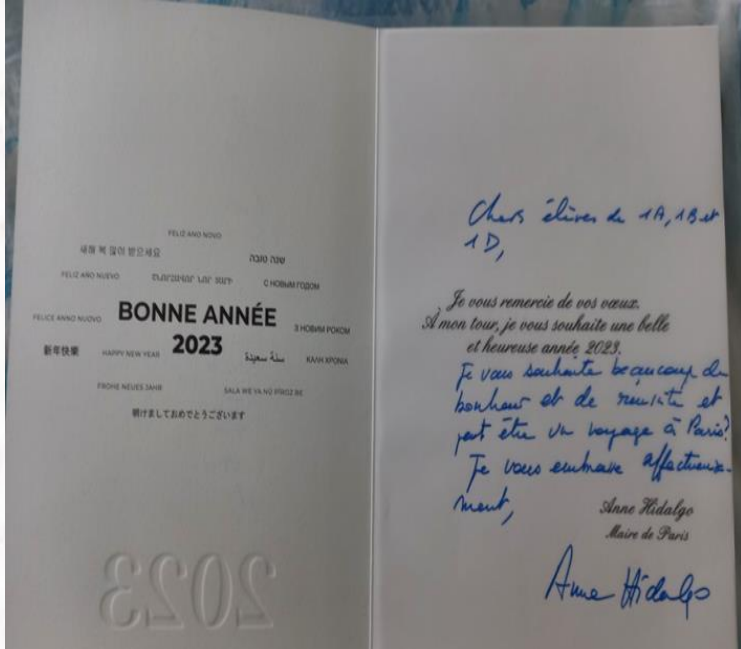 FELIZ ANO NOVO
새해 복 많이 받으세요
שנה טובה
FELIZ AÑO NUEVO
ՇՆՈՐՀԱՎՈՐ ՆՈՐ ՏԱՐԻ
С НОВЫМ ГОДОМ
BONNE ANNÉE
2023
FELICE ANNO NUOVO
З НОВИМ РОКОМ
新年快樂
HAPPY NEW YEAR
سنة سعيدة
ΚΑΛΗ ΧΡΟΝΙΑ
FROHE NEUES JAHR
SALA WE YA NÛ PÎROZ BE
明けましておめでとうございます
2023
Chers élèves de 1A, 1B et
1D,
Je vous remercie de vos vœux.
À mon tour, je vous souhaite une belle
et heureuse année 2023.
Je vous souhaite beaucoup de
bonheur et de réussite et
peut être un voyage à Paris?
Je vous embrasse affectueuse-
ment,
Anne Hidalgo
Maire de Paris
Anne Hidalgo